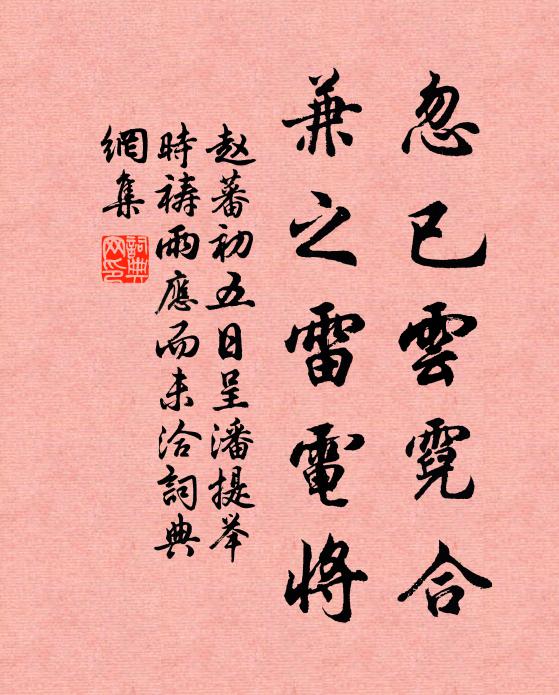 忽已雲霓合
兼之雷電將
赵蕃初五日呈潘提举
時禱雨應而未洽詞典
網集
詞典網印